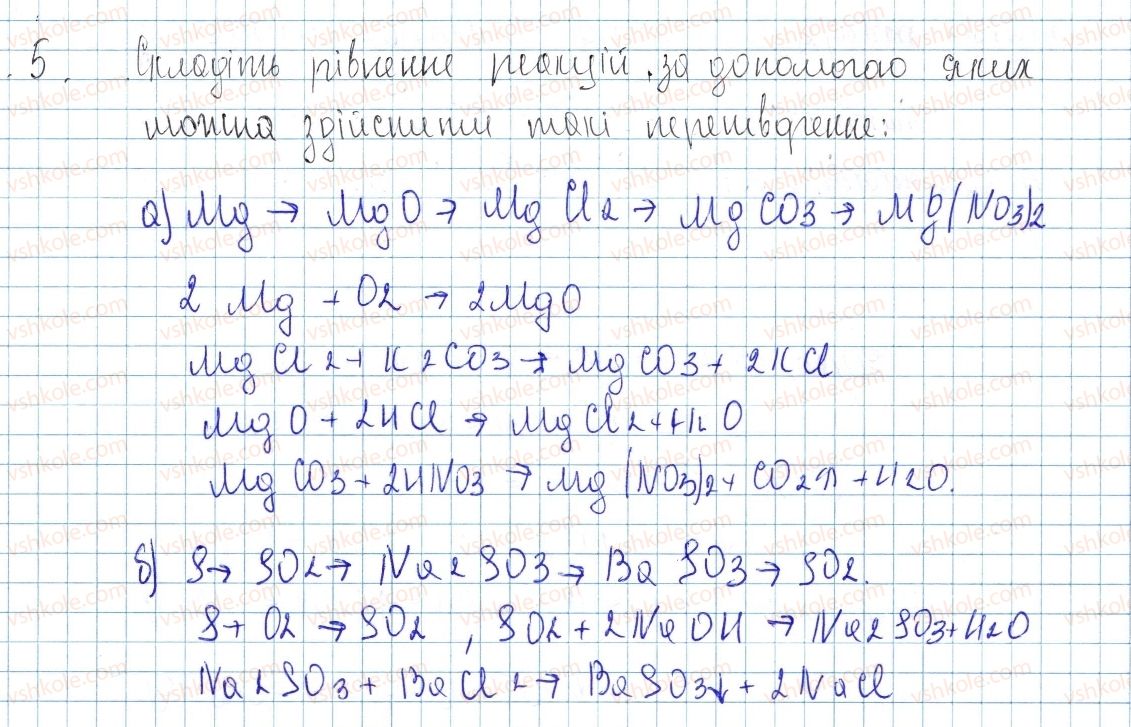 5. Складіть рівнення реакцій, за допомогаю яких
можна здійснити такі перетворення:
а) Mg → MgO → MgCl2 → MgCO3 → Mg(NO3)2
2Mg + O2 → 2MgO
MgCl2 + K2CO3 → MgCO3 + 2KCl
MgO + 2HCl → MgCl2 + H2O
MgCO3 + 2HNO3 → Mg(NO3)2 + CO2↑ + H2O.
б) S → SO2 → Na2SO3 → BaSO3 → SO2.
S + O2 → SO2, SO2 + 2NaOH → Na2SO3 + H2O
Na2SO3 + BaCl2 → BaSO3↓ + 2NaCl